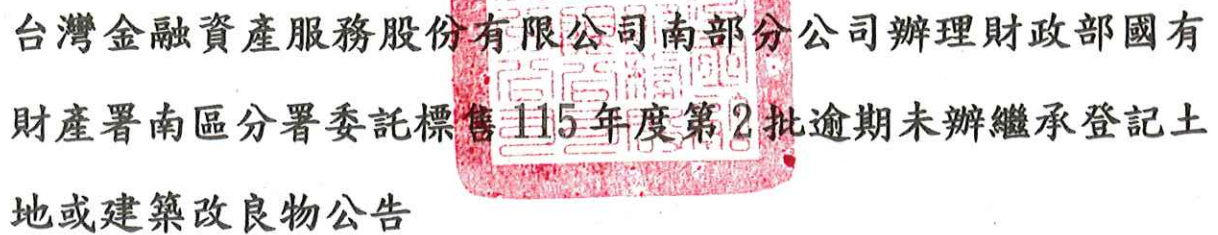 台灣金融資產服務股份有限公司南部分公司辦理財政部國有
財產署南區分署委託標售115年度第2批逾期未辦繼承登記土
地或建築改良物公告